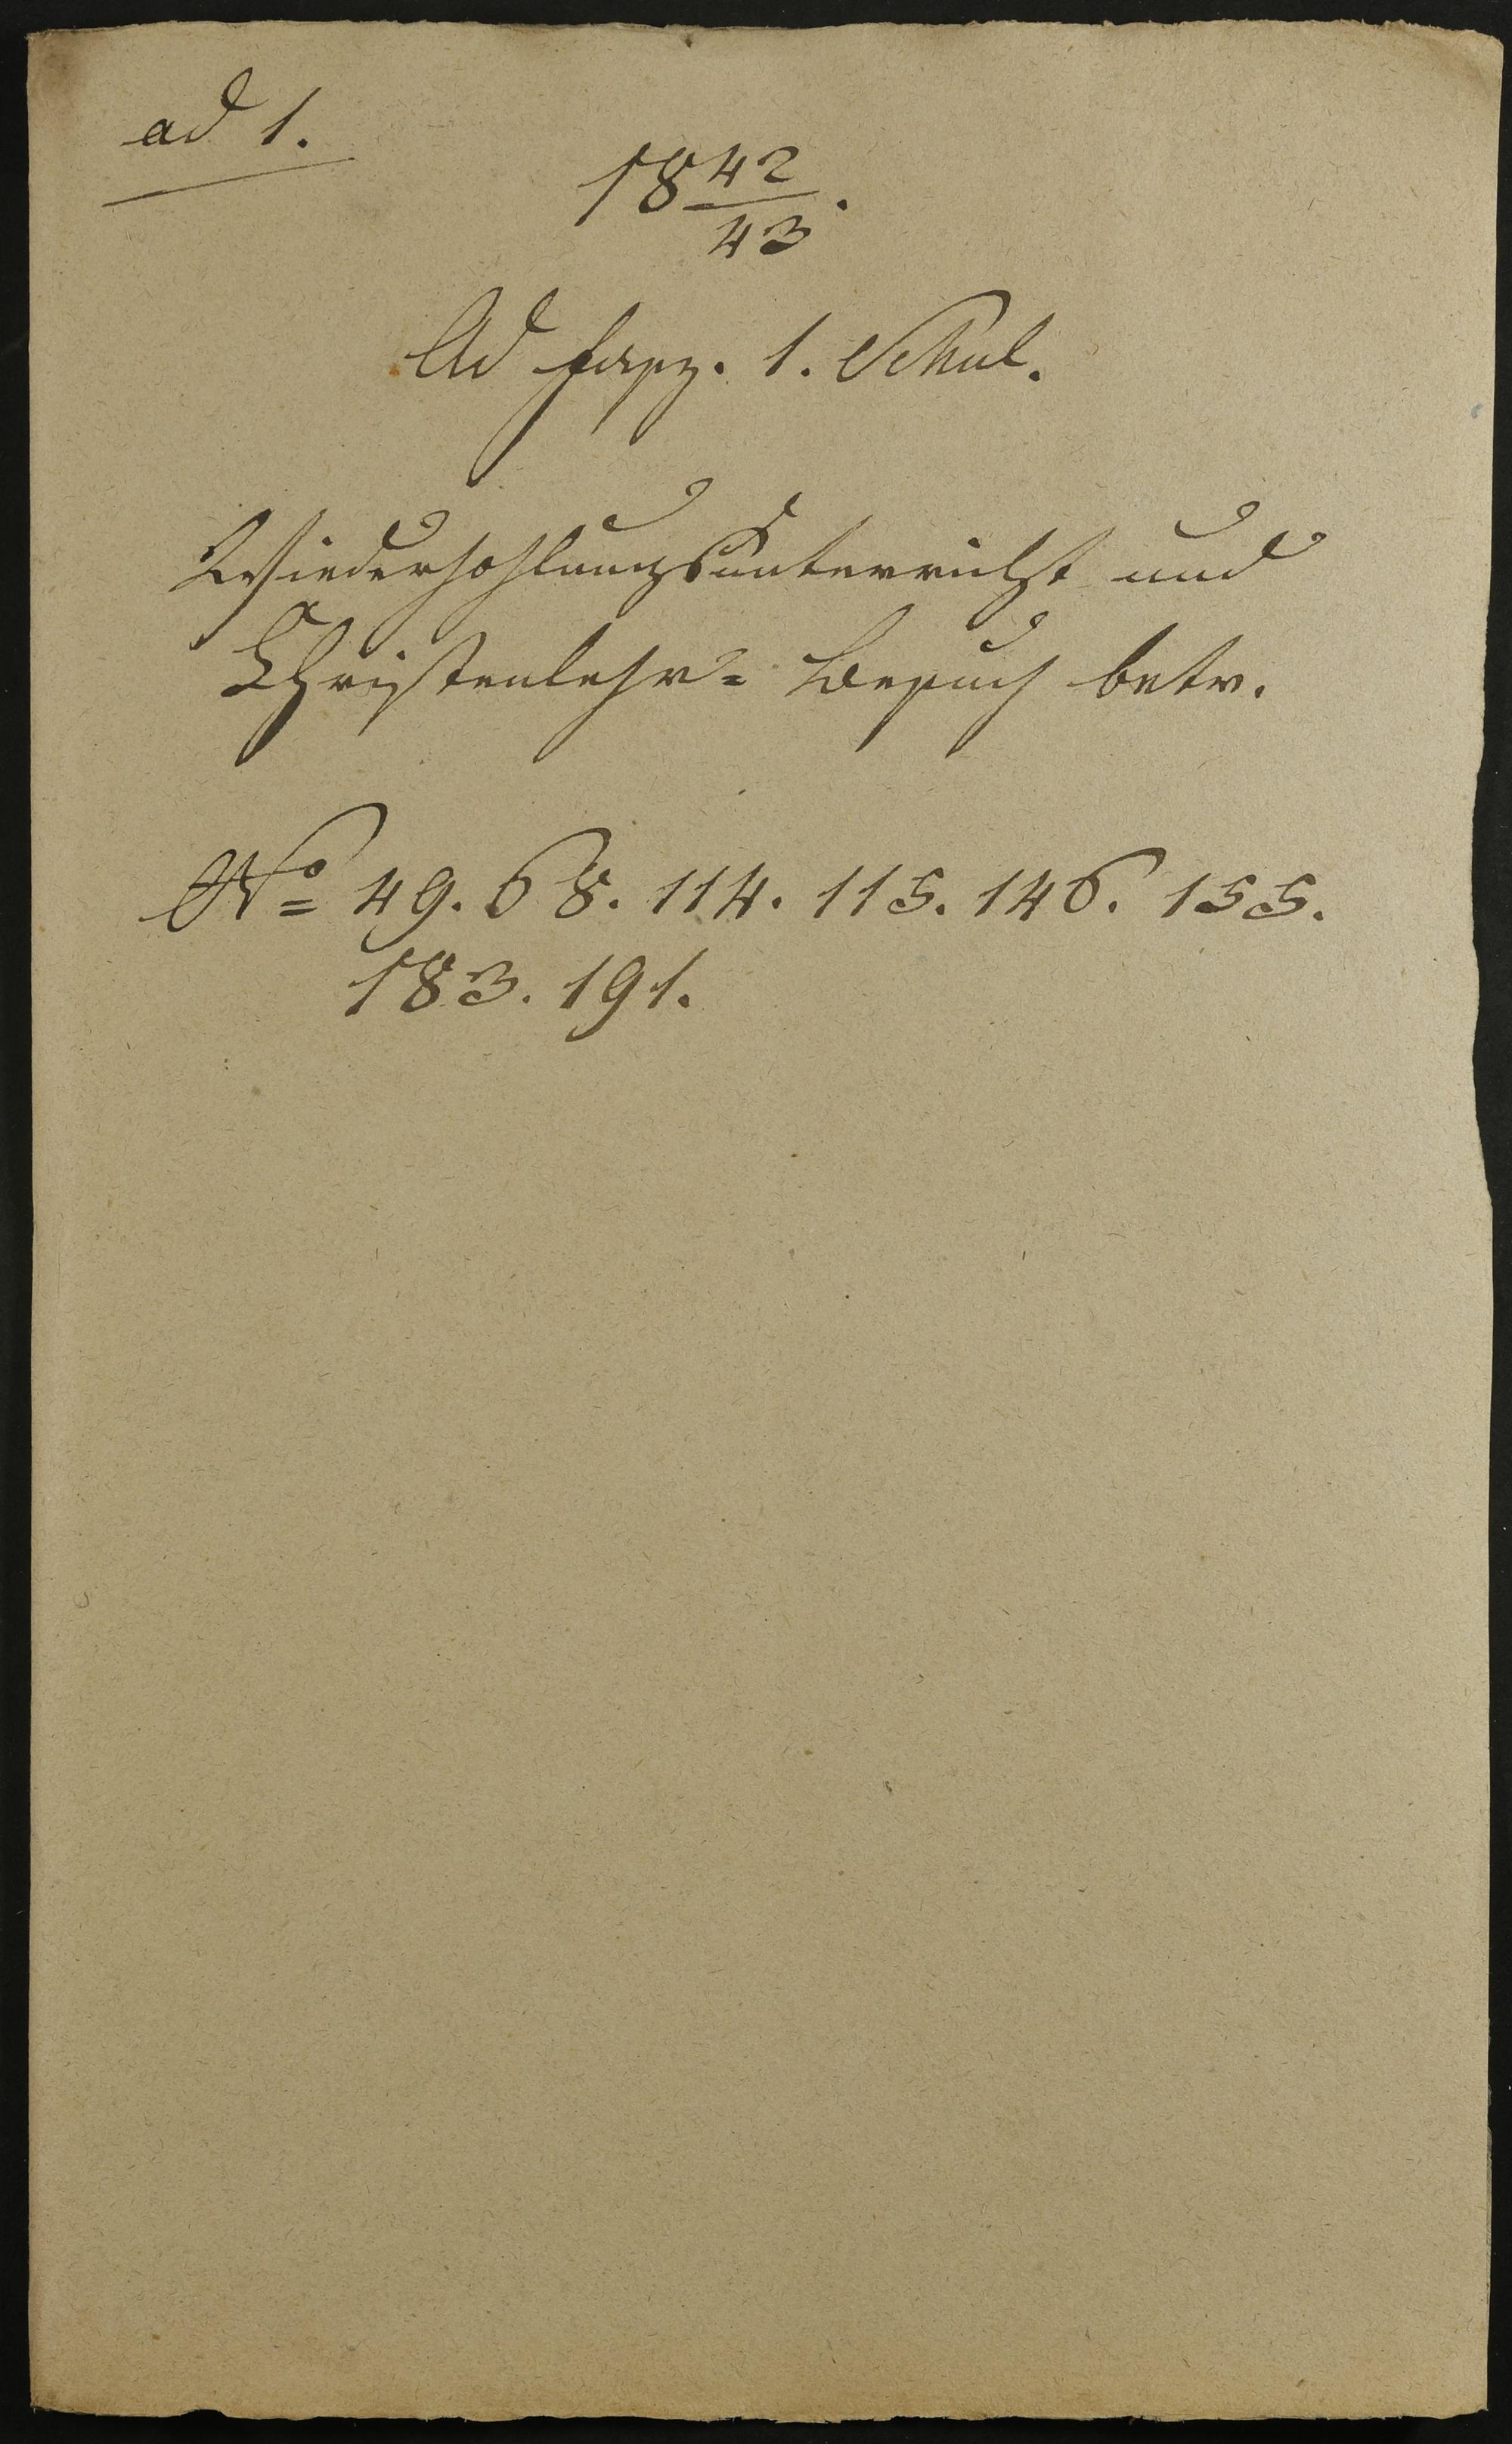 ad 1.
18 42/43.
Ad fasz. 1. Schul.
Wiederhohlungsunterricht und
Christenlehr= Besuch betr.
No= 49. 68. 114. 115. 146. 155.
183. 191.